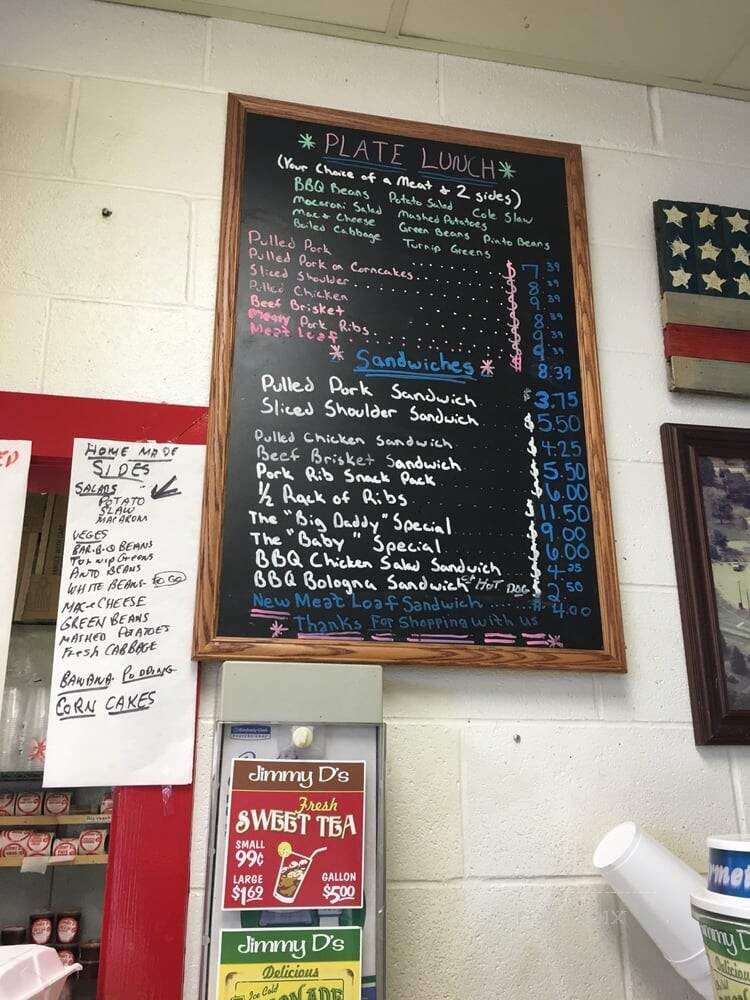 * PLATE LUNCH *
(Your Choice of a Meat & 2 sides)
BBQ Beans Potato Salad Cole Slaw
Macaroni Salad Mashed Potatoes
Mac & Cheese Green Beans Pinto Beans
Boiled Cabbage Turnip Greens
Pulled Pork 7.39
Pulled Pork on Corncakes 8.39
Sliced Shoulder 9.39
Pulled Chicken 8.39
Beef Brisket 9.39
Meaty Pork Ribs 9.39
Meat Loaf 8.39
* Sandwiches *
Pulled Pork Sandwich 3.75
Sliced Shoulder Sandwich 5.50
Pulled Chicken Sandwich 4.25
Beef Brisket Sandwich 5.50
Pork Rib Snack Pack 6.00
1/2 Rack of Ribs 11.50
The "Big Daddy" Special 9.00
The "Baby" Special 6.00
BBQ Chicken Salad Sandwich 4.25
BBQ Bologna Sandwich HOT DOG 2.50
New Meat Loaf Sandwich 4.00
* Thanks For Shopping with us *
HOME MADE
SIDES
SALADS
POTATO
SLAW
MACARONI
VEGES
BAR-B-Q BEANS
TURNIP GREENS
PINTO BEANS
WHITE BEANS - TO GO
MAC & CHEESE
GREEN BEANS
MASHED POTATOES
FRESH CABBAGE
BANANA PUDDING
CORN CAKES
Jimmy D's
Fresh
SWEET TEA
SMALL
99¢
LARGE
$1.69
GALLON
$5.00
Jimmy D's
Delicious
Ice Cold